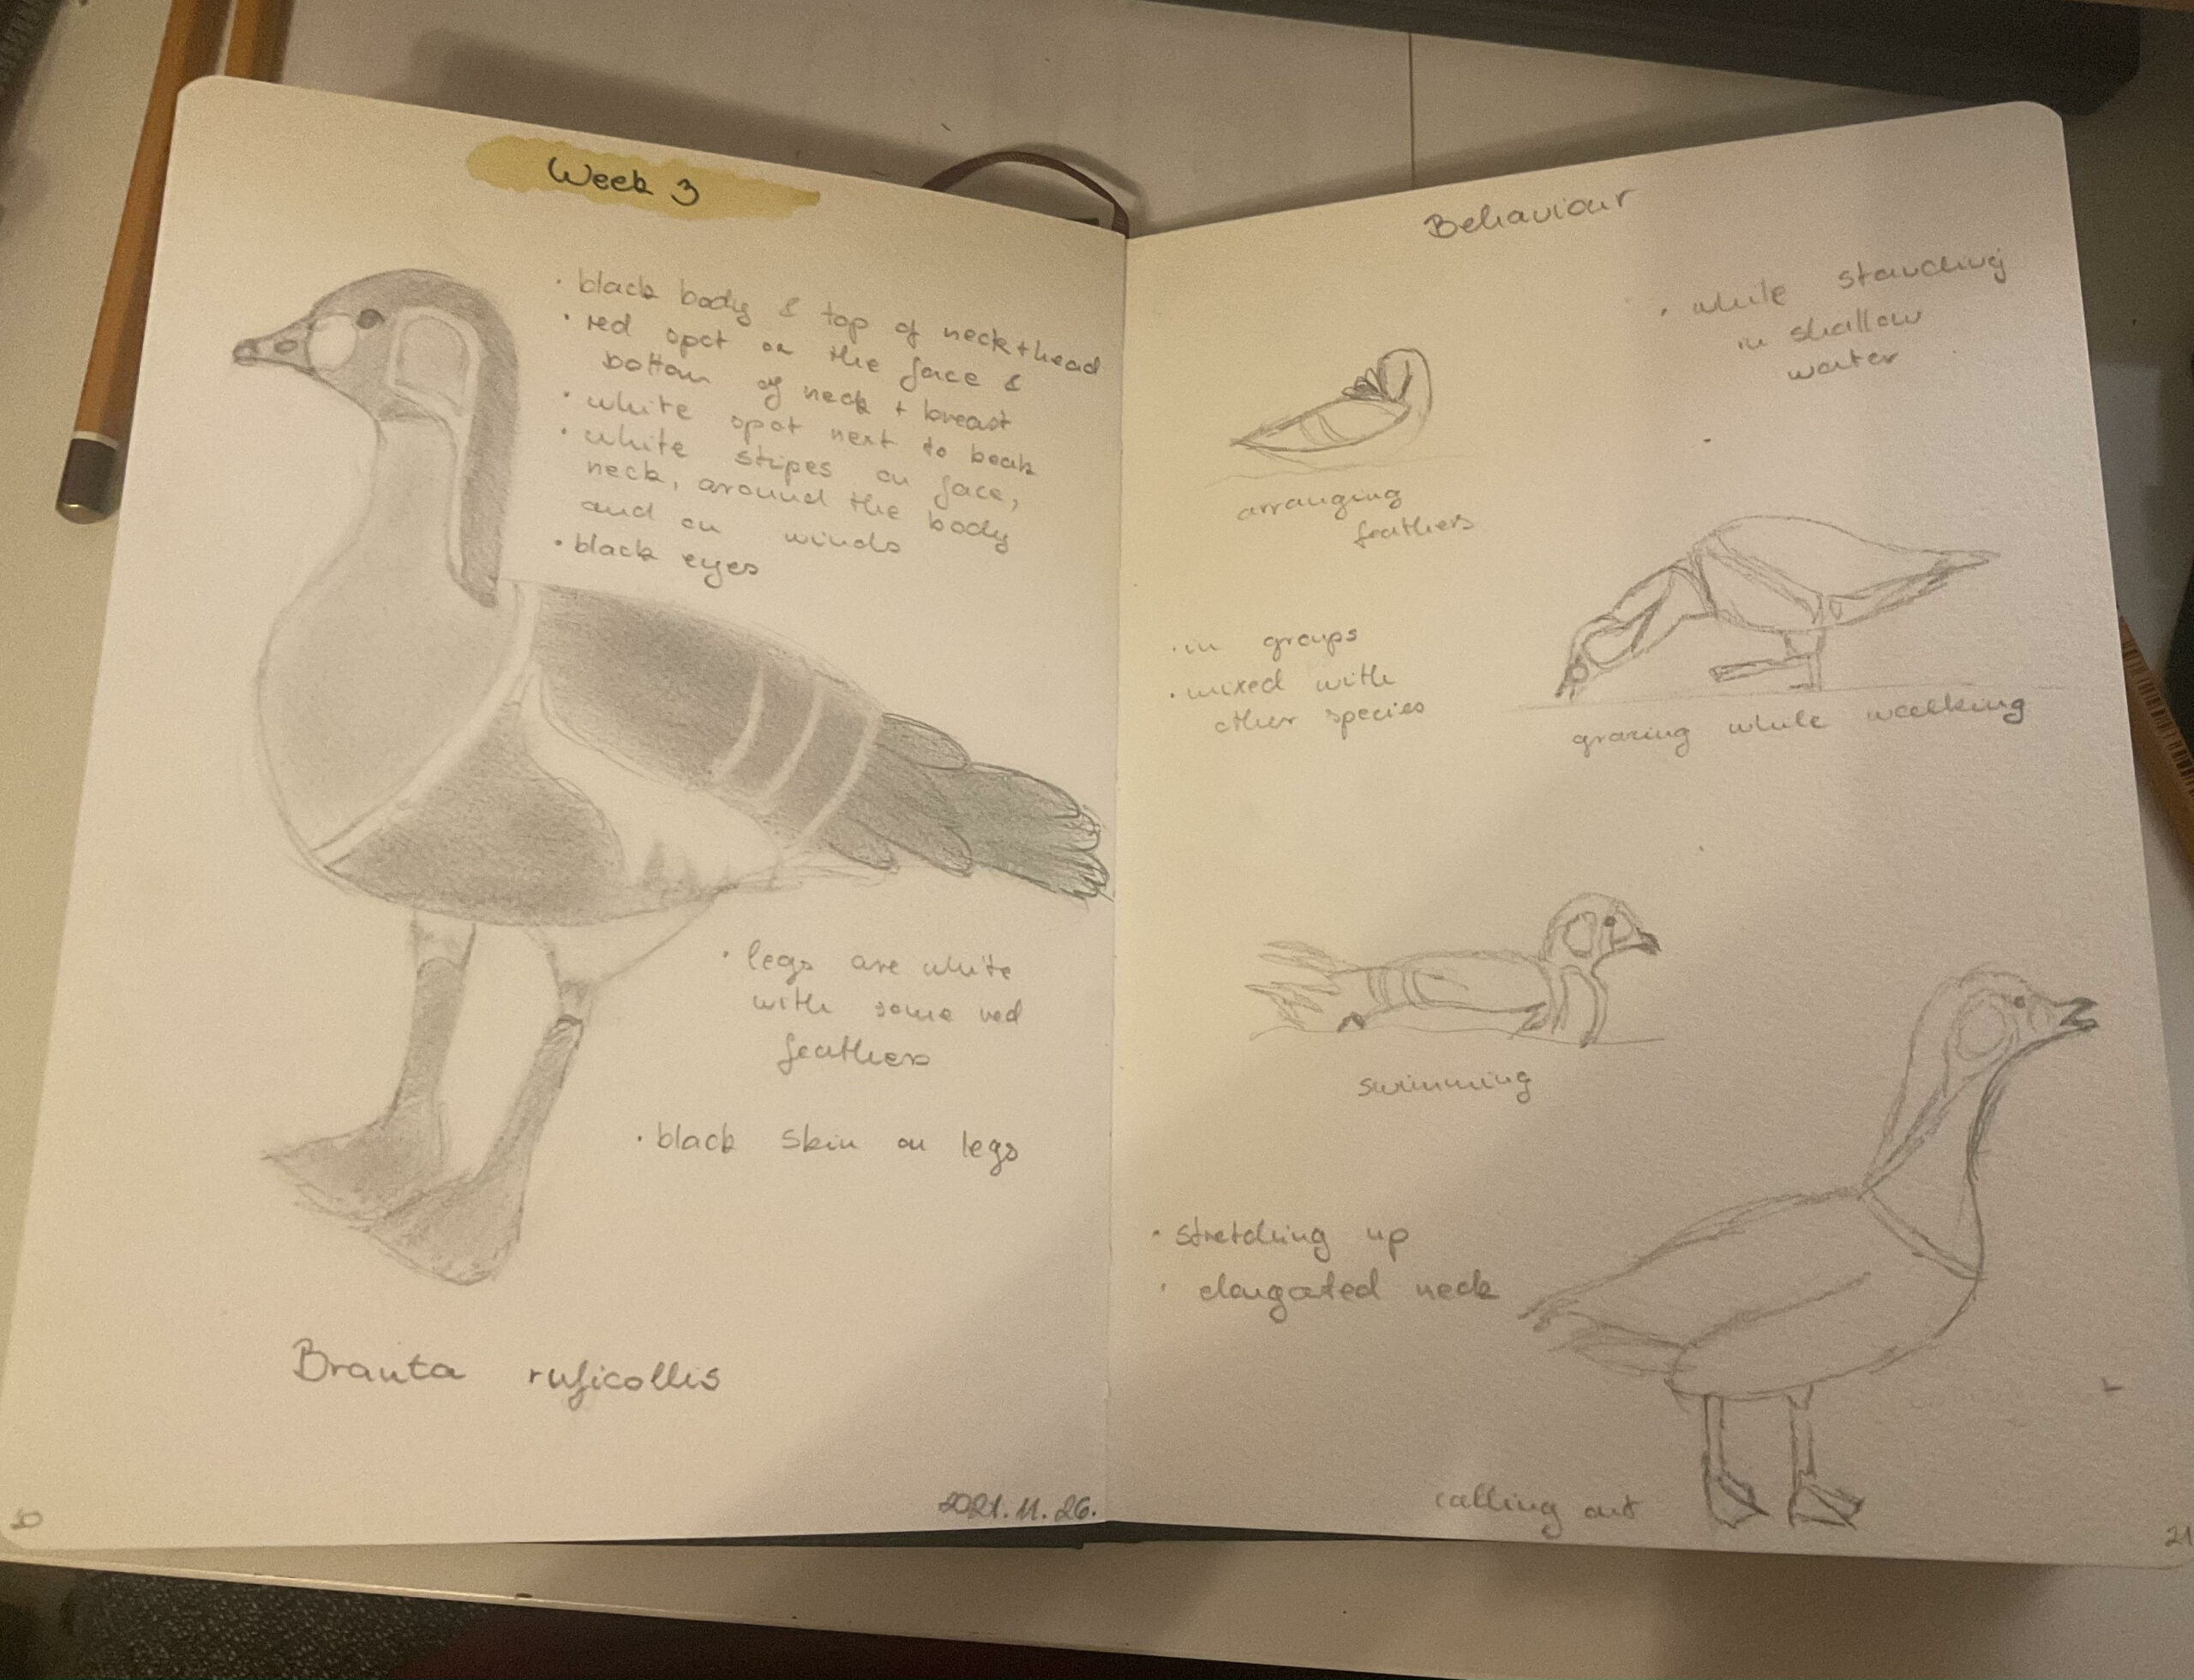 Week 3
· black body & top of neck + head
· red spot on the face &
bottom of neck + breast
· white spot next to beak
· white stripes on face,
neck, around the body
and on winds
· black eyes
· legs are white
with some red
feathers
· black skin on legs
Branta ruficollis
2021.11.26.
Behaviour
· while standing
in shallow
water
arranging
feathers
· in groups
· mixed with
other species
grazing while walking
swimming
· stretching up
· elongated neck
calling out
21